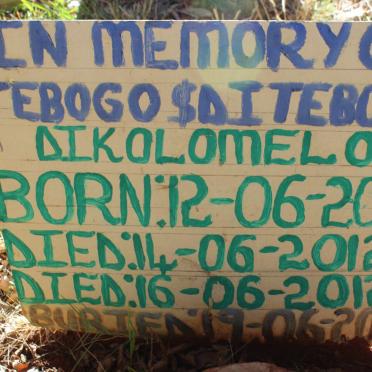 IN MEMORY O
TEBOGO $ DITEBO
DIKOLOMELO
BORN:12-06-20
DIED:14-06-2012
DIED:16-06-2012
BURIED:19-06-20